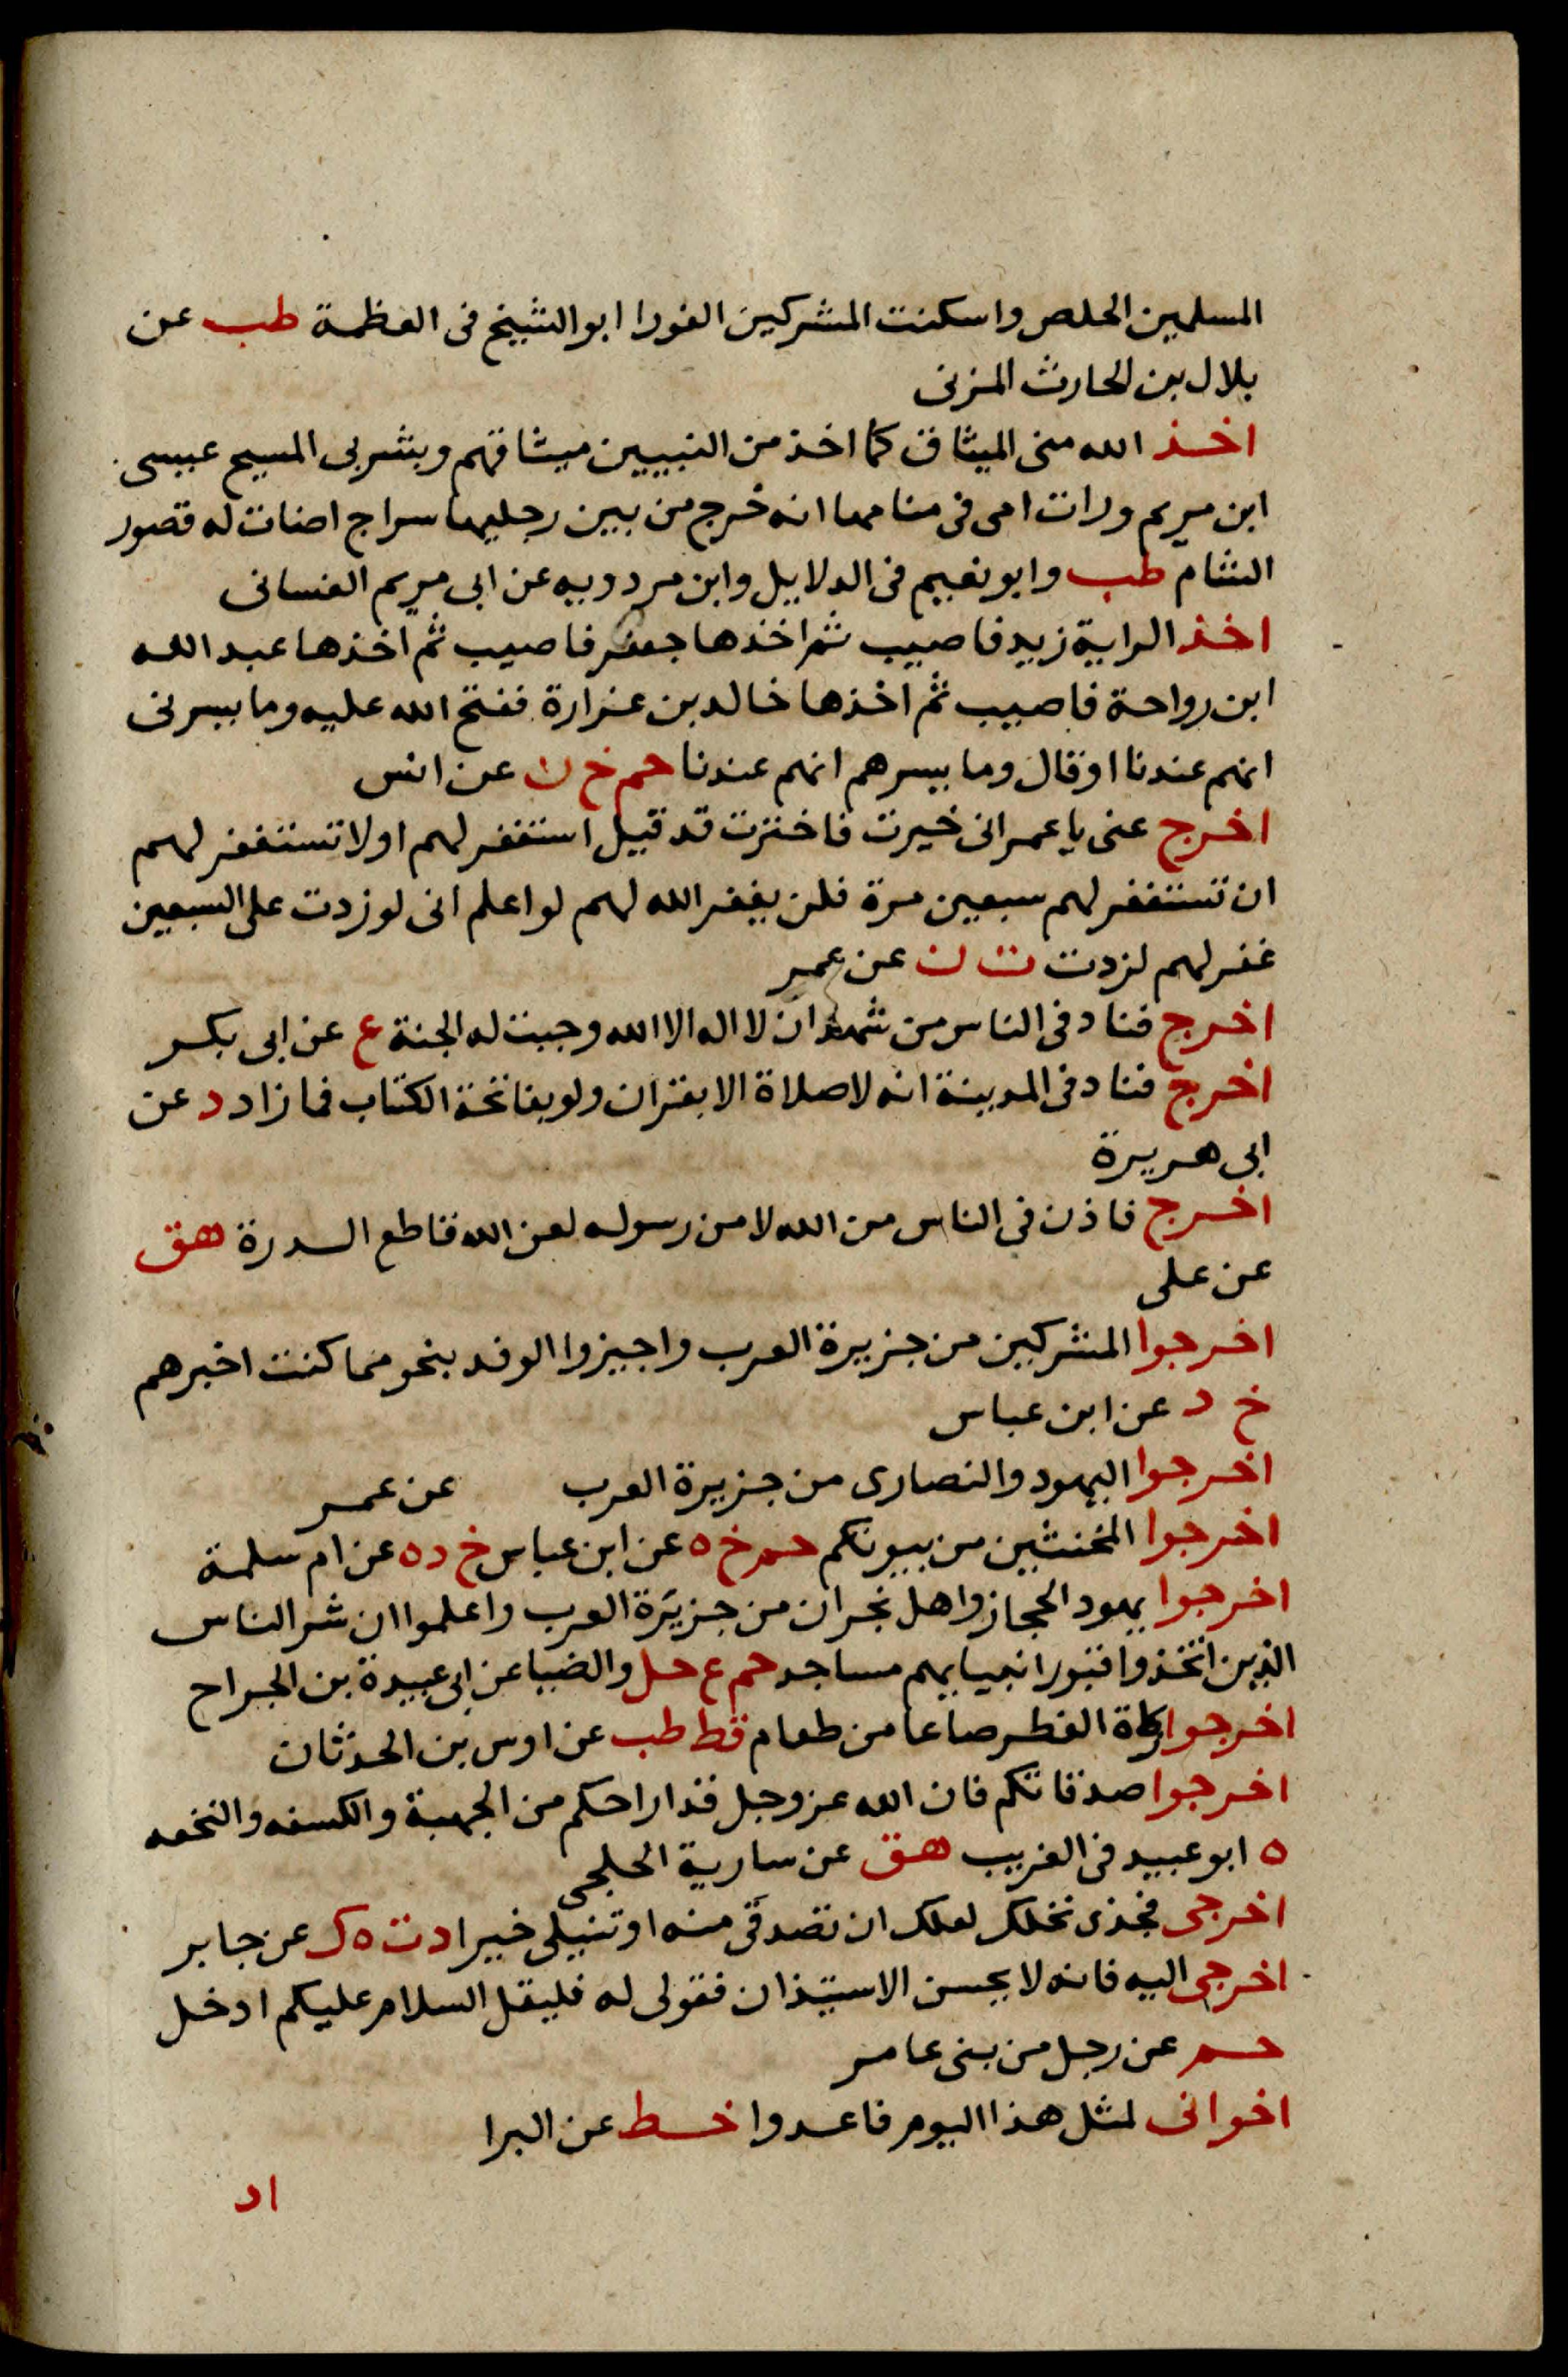 المسلمين الحلص واسكنت المشركين الغورا ابو الشيخ فى العظمة طب عن
بلال بن الحارث المزنى
اخذ الله منى الميثاق كما اخذ من النبيين ميثاقهم وبشر بى المسيح عيسى
ابن مريم ورات امى فى منامها انه خرج من بين رجليها سراج اضات له قصور
الشام طب وابو نعيم فى الدلايل وابن مردويه عن ابى مريم الغسانى
اخذ الراية زيد فاصيب ثم اخذها جعفر فاصيب ثم اخذها عبد الله
ابن رواحة فاصيب ثم اخذها خالد بن غزارة ففتح الله عليه وما يسرنى
انهم عندنا او قال وما يسرهم انهم عندنا حم خ ن عن انس
اخرج عنى يا عمر انى خيرت فاخترت قد قيل استغفر لهم اولا تستغفر لهم
ان تستغفر لهم سبعين مرة فلن يغفر الله لهم لو اعلم انى لو زدت على السبعين
غفر لهم لزدت ت ن عن عمر
اخرج فناد فى الناس من شهد ان لا اله الا الله وجبت له الجنة ع عن ابى بكر
اخرج فناد فى المدينة انه لا صلاة الا بقران ولو بفاتحة الكتاب فما زاد د عن
ابى هريرة
اخرج فاذن فى الناس من الله لا من رسوله لعن الله قاطع السدرة هق
عن على
اخرجوا المشركين من جزيرة العرب واجيزوا الوفد بنحو مما كنت اخبرهم
خ د عن ابن عباس
اخرجوا اليهود والنصارى من جزيرة العرب عن عمر
اخرجوا المخنثين من بيوتكم حم خ ه عن ابن عباس خ د ه عن ام سلمة
اخرجوا يهود الحجاز واهل نجران من جزيرة العرب واعلموا ان شر الناس
الذين اتخذوا قبور انبيايهم مساجد حم ع حل والضيا عن ابى عبيدة بن الجراح
اخرجوا زكاة الفطر صاعا من طعام قط طب عن اوس بن الحدثان
اخرجوا صدقاتكم فان الله عز وجل قد اراحكم من الجبهة والكسفه والنخعه
ه ابو عبيد فى الغريب هق عن سارية الحلجى
اخرجى فجذى نخلك لعلك ان تصدقى منه او تنيلى خيرا د ت ه ك عن جابر
اخرجى اليه فانه لا يحسن الاستيذان فقولى له فليقل السلام عليكم ادخل
حم عن رجل من بنى عامر
اخوانى لمثل هذا اليوم فاعدوا خط عن البرا
اد